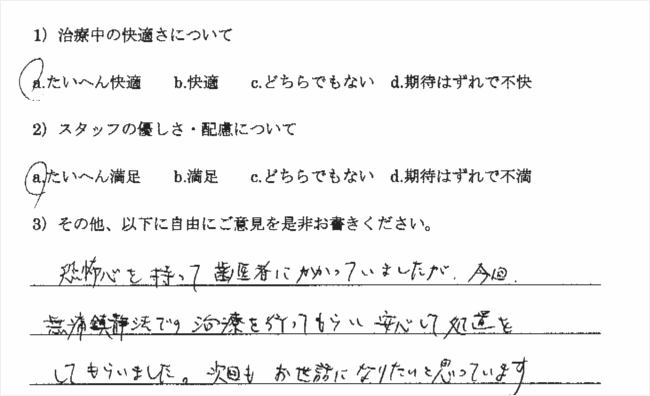 1）治療中の快適さについて
a.たいへん快適　b.快適　c.どちらでもない　d.期待はずれで不快
2）スタッフの優しさ・配慮について
a.たいへん満足　b.満足　c.どちらでもない　d.期待はずれで不満
3）その他、以下に自由にご意見を是非お書きください。
恐怖心を持って歯医者にかかっていましたが、今回、
無痛鎮静法での治療を行ってもらい安心して処置を
してもらいました。次回もお世話になりたいと思っています